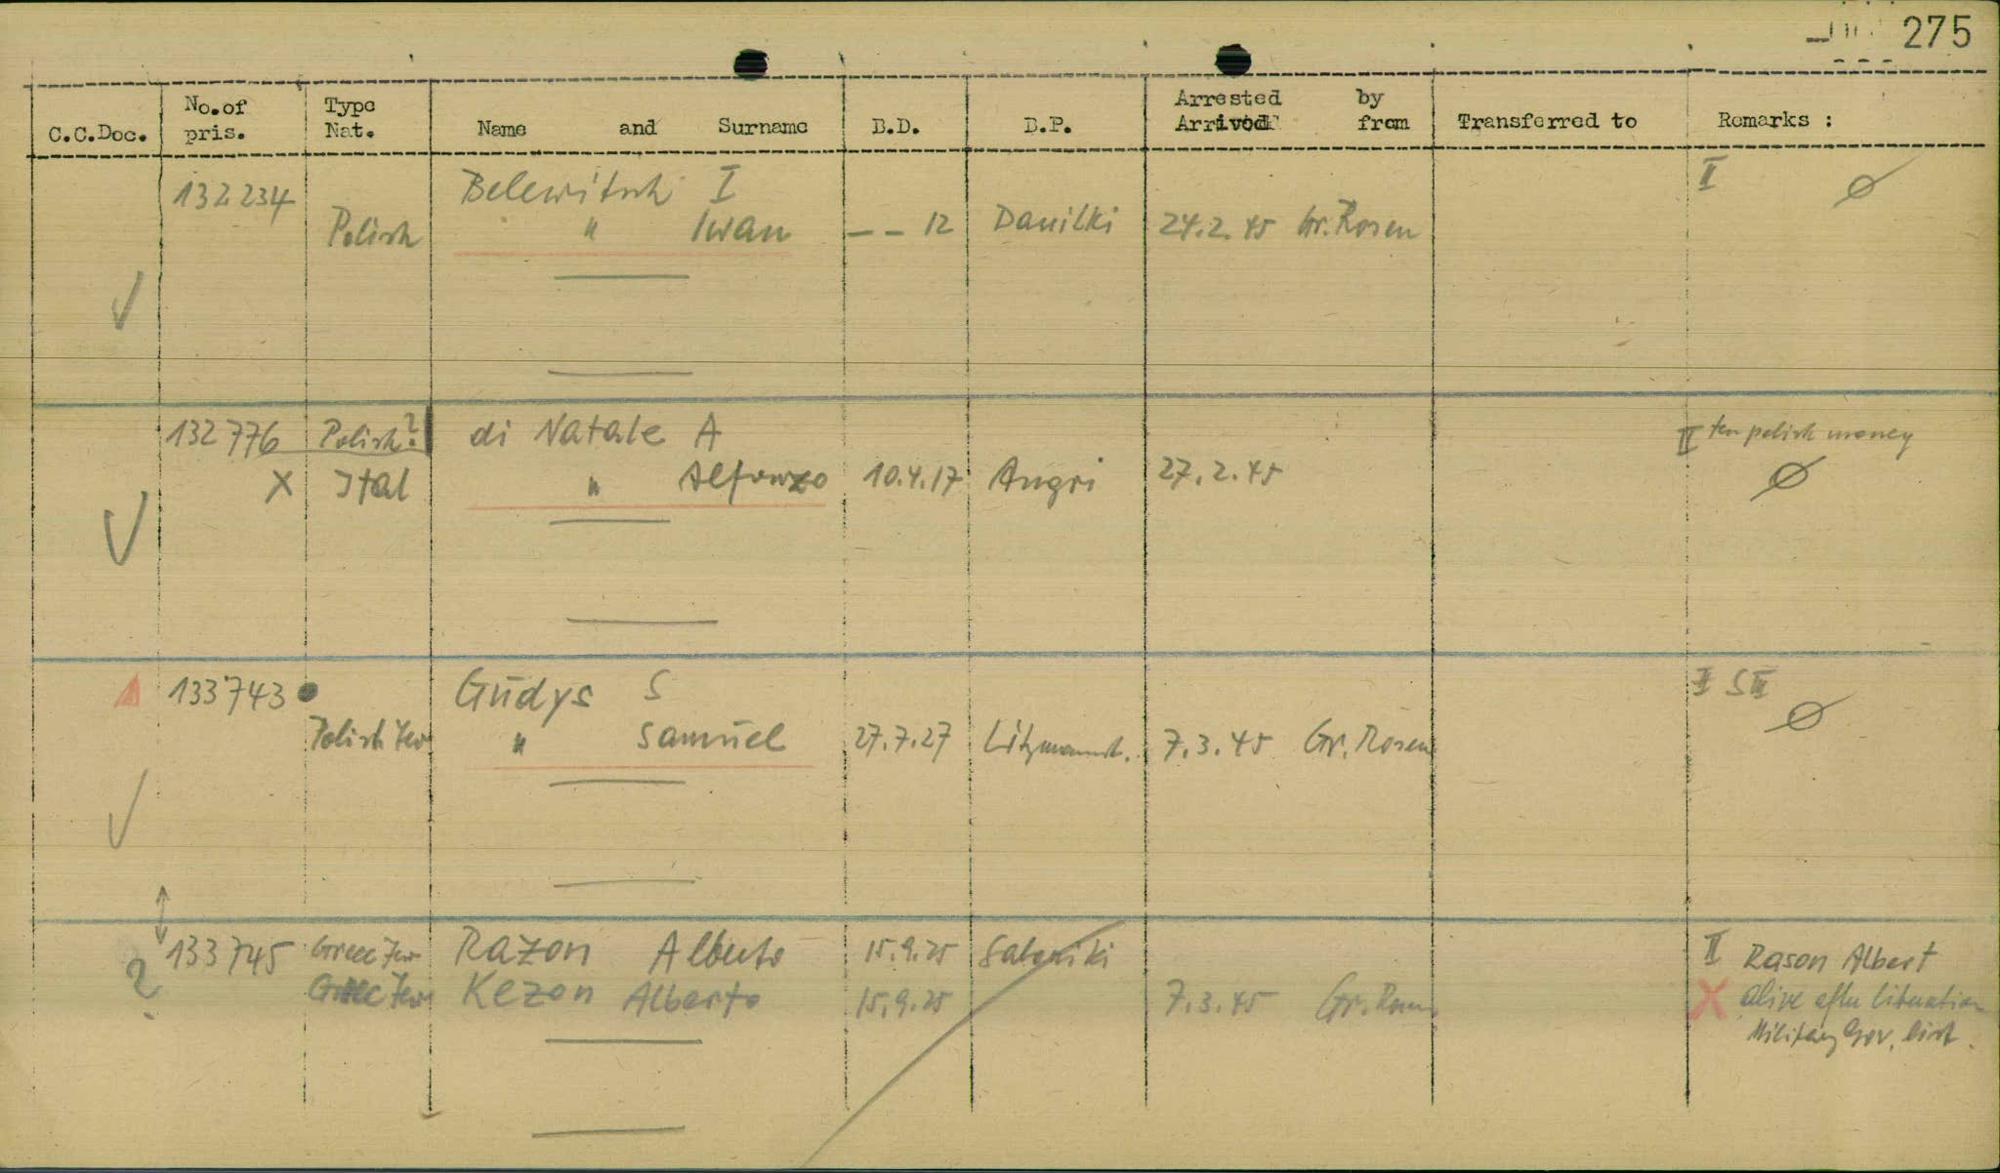 275
C.C.Doc. No.of pris. Type Nat. Name and Surname B.D. B.P. Arrested by Arrived from Transferred to Remarks :
132234 Belewitsch I II ∅
Polish " Iwan – – 12 Danilki 24.2.45 Gr.Rosen
132776 Polish? di Natale A II ten polish money
X Ital " Alfonzo 10.4.17 Angri 27.2.45 ∅
133743 Gudys S II S III
Polish Jew " Samuel 27.7.27 Litzmannst. 7.3.45 Gr.Rosen ∅
133745 Greec Jew Razon Alberto 15.9.25 Saloniki II Rason Albert
? Greec Jew Kezon Alberto 15.9.25 7.3.45 Gr.Rosen X alive after liberation
Military Gov. list.